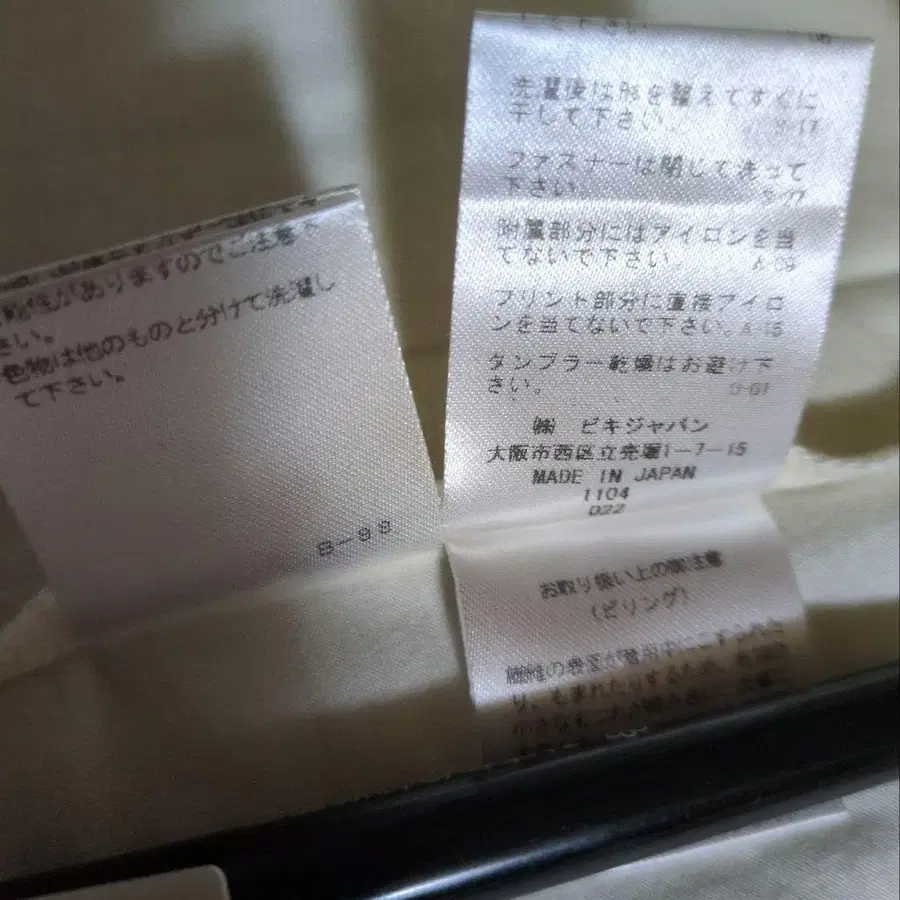 性がありますのでご注意下
さい。
色物は他のものと分けて洗濯し
て下さい。
B-98
して下さい。
洗濯後は形を整えてすぐに
干して下さい。
ファスナーは閉じて洗って
下さい。
附属部分にはアイロンを当
てないで下さい。 A-09
プリント部分に直接アイロ
ンを当てないで下さい。A-15
タンブラー乾燥はお避け下
さい。 D-61
㈱ ビキジャパン
大阪市西区立売堀1-7-15
MADE IN JAPAN
1104
022
お取り扱い上の御注意
(ピリング)
繊維の表面が着用中にこすられた
り、もまれたりするため、